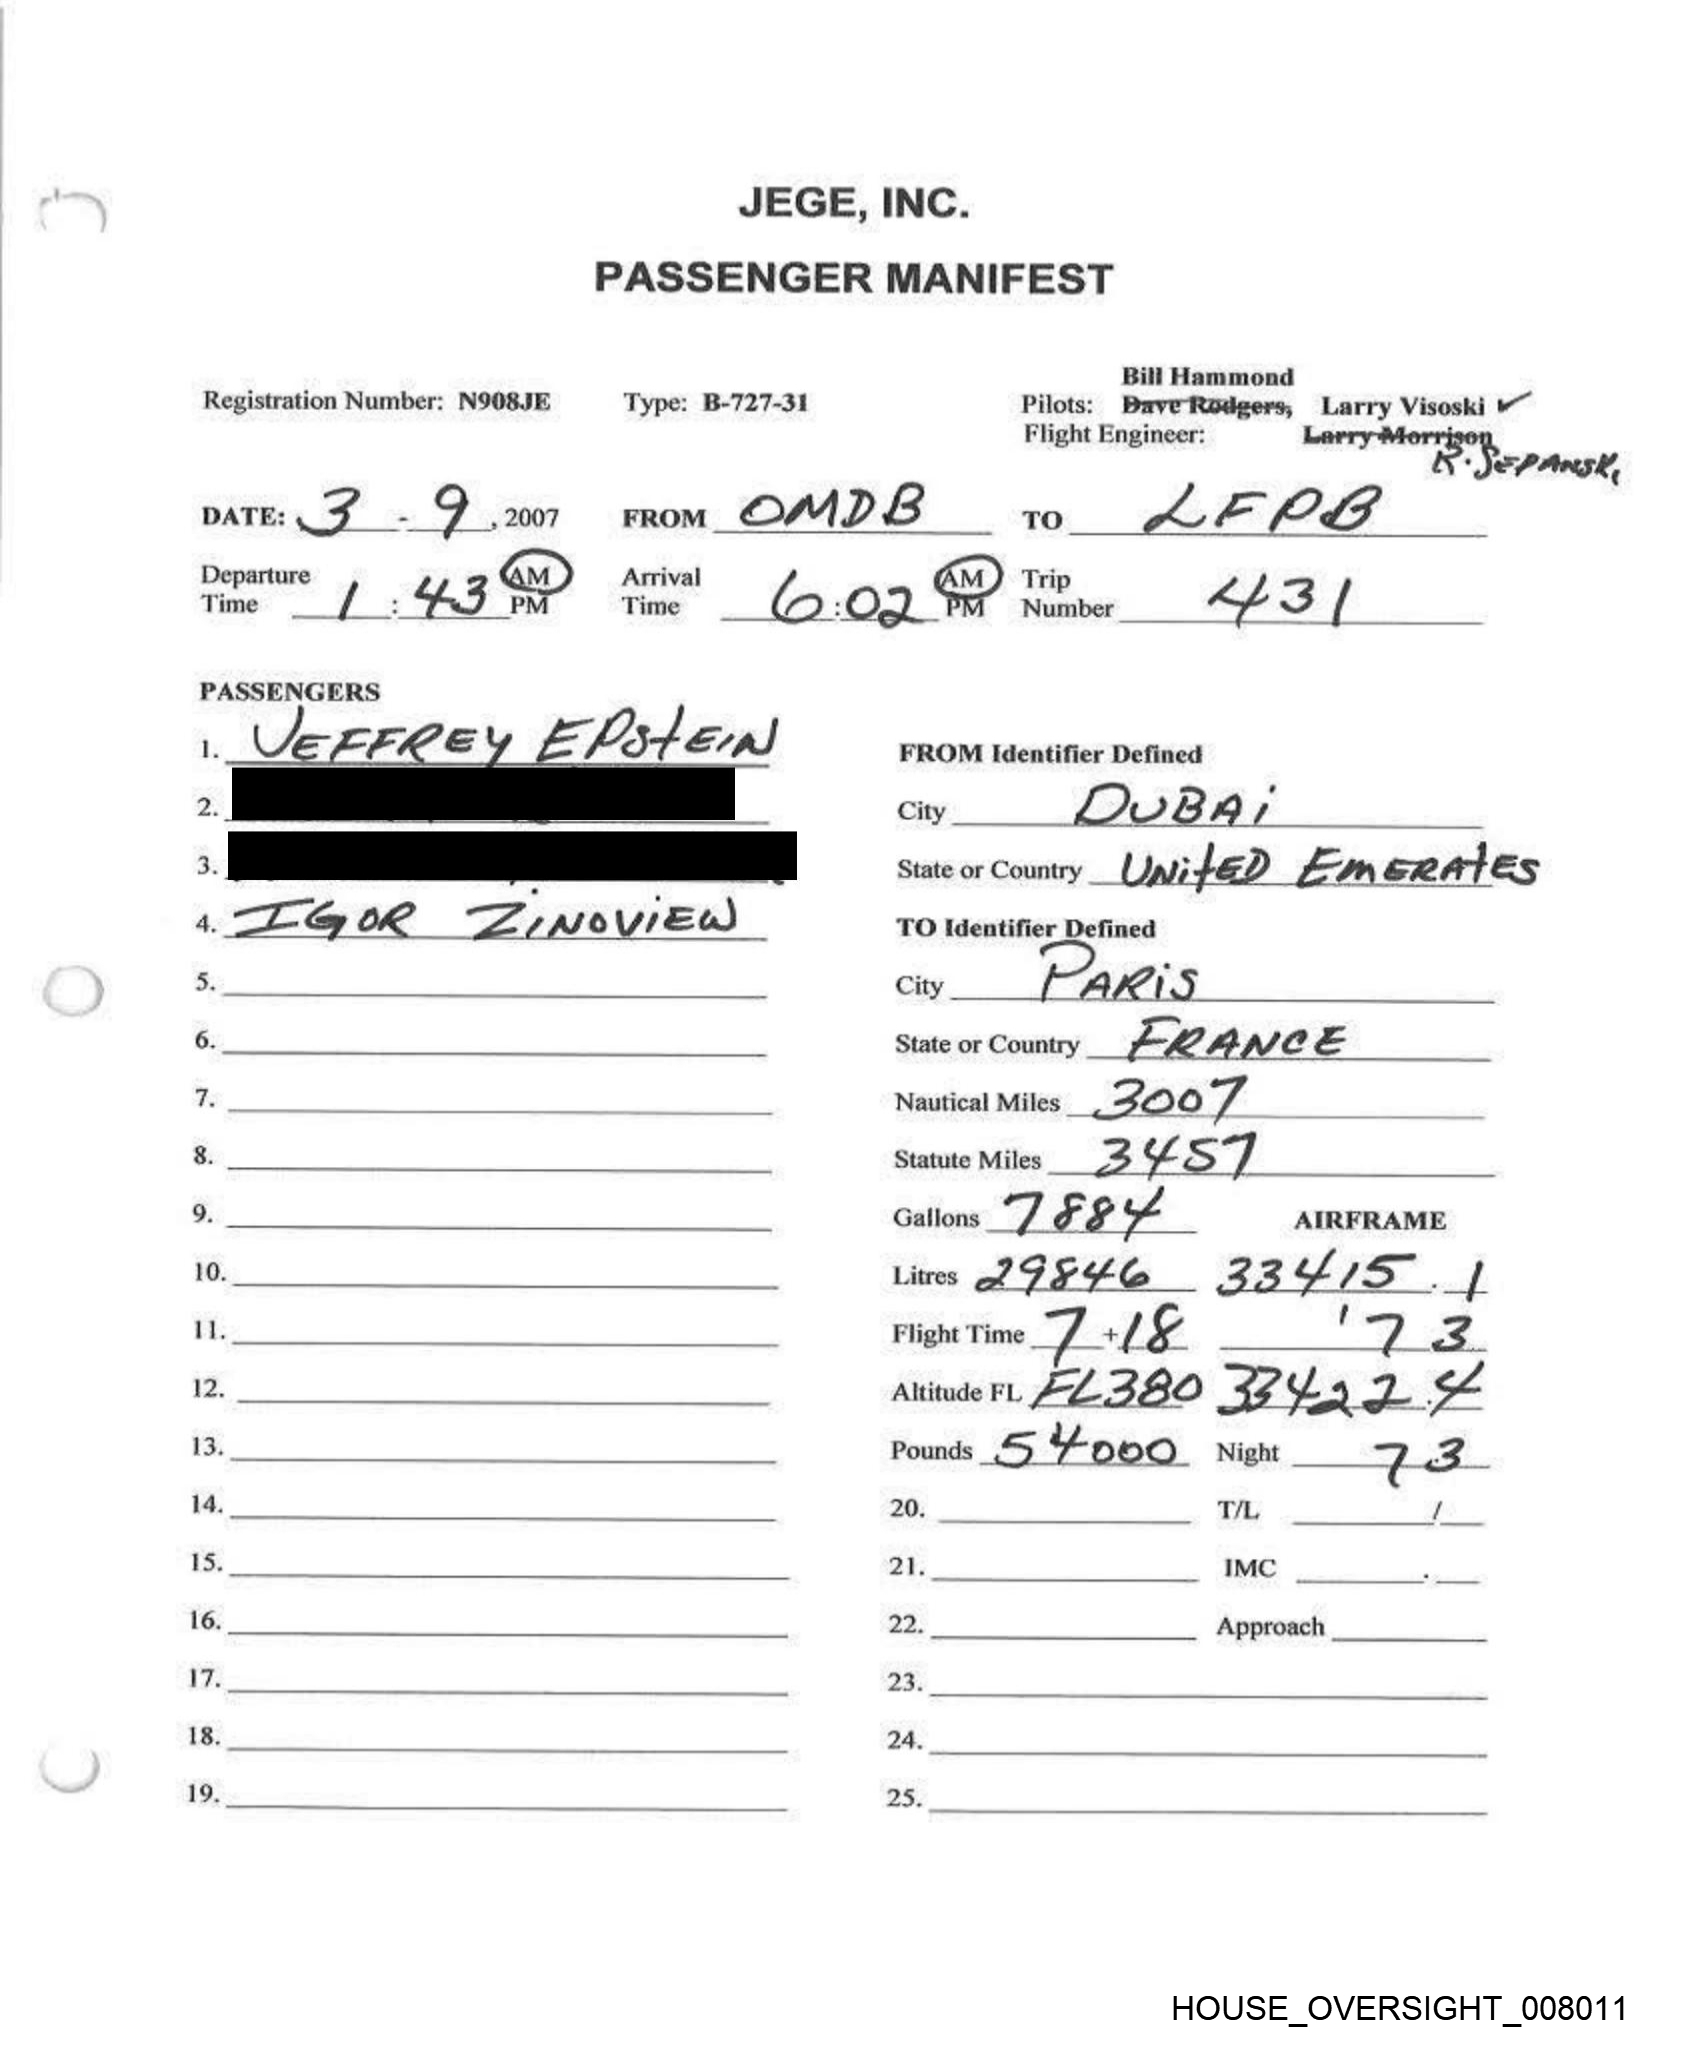 JEGE, INC.
PASSENGER MANIFEST
Bill Hammond
Registration Number: N908JE Type: B-727-31 Pilots: Dave Rodgers, Larry Visoski ✓
Flight Engineer: Larry Morrison
R. SEPANSKI
DATE: 3 - 9, 2007 FROM OMDB TO LFPB
Departure Time 1:43 AM PM Arrival Time 6:02 AM PM Trip Number 431
PASSENGERS
1. JEFFREY EPstEIN
2.
3.
4. IGOR ZiNOViEW
5.
6.
7.
8.
9.
10.
11.
12.
13.
14.
15.
16.
17.
18.
19.
FROM Identifier Defined
City DUBAi
State or Country UNitED EmERAtES
TO Identifier Defined
City PARiS
State or Country FRANCE
Nautical Miles 3007
Statute Miles 3457
Gallons 7884 AIRFRAME
Litres 29846 33415.1
Flight Time 7+18 7 3
Altitude FL FL380 33422.4
Pounds 54000 Night 7 3
20. T/L /
21. IMC .
22. Approach
23.
24.
25.
HOUSE_OVERSIGHT_008011